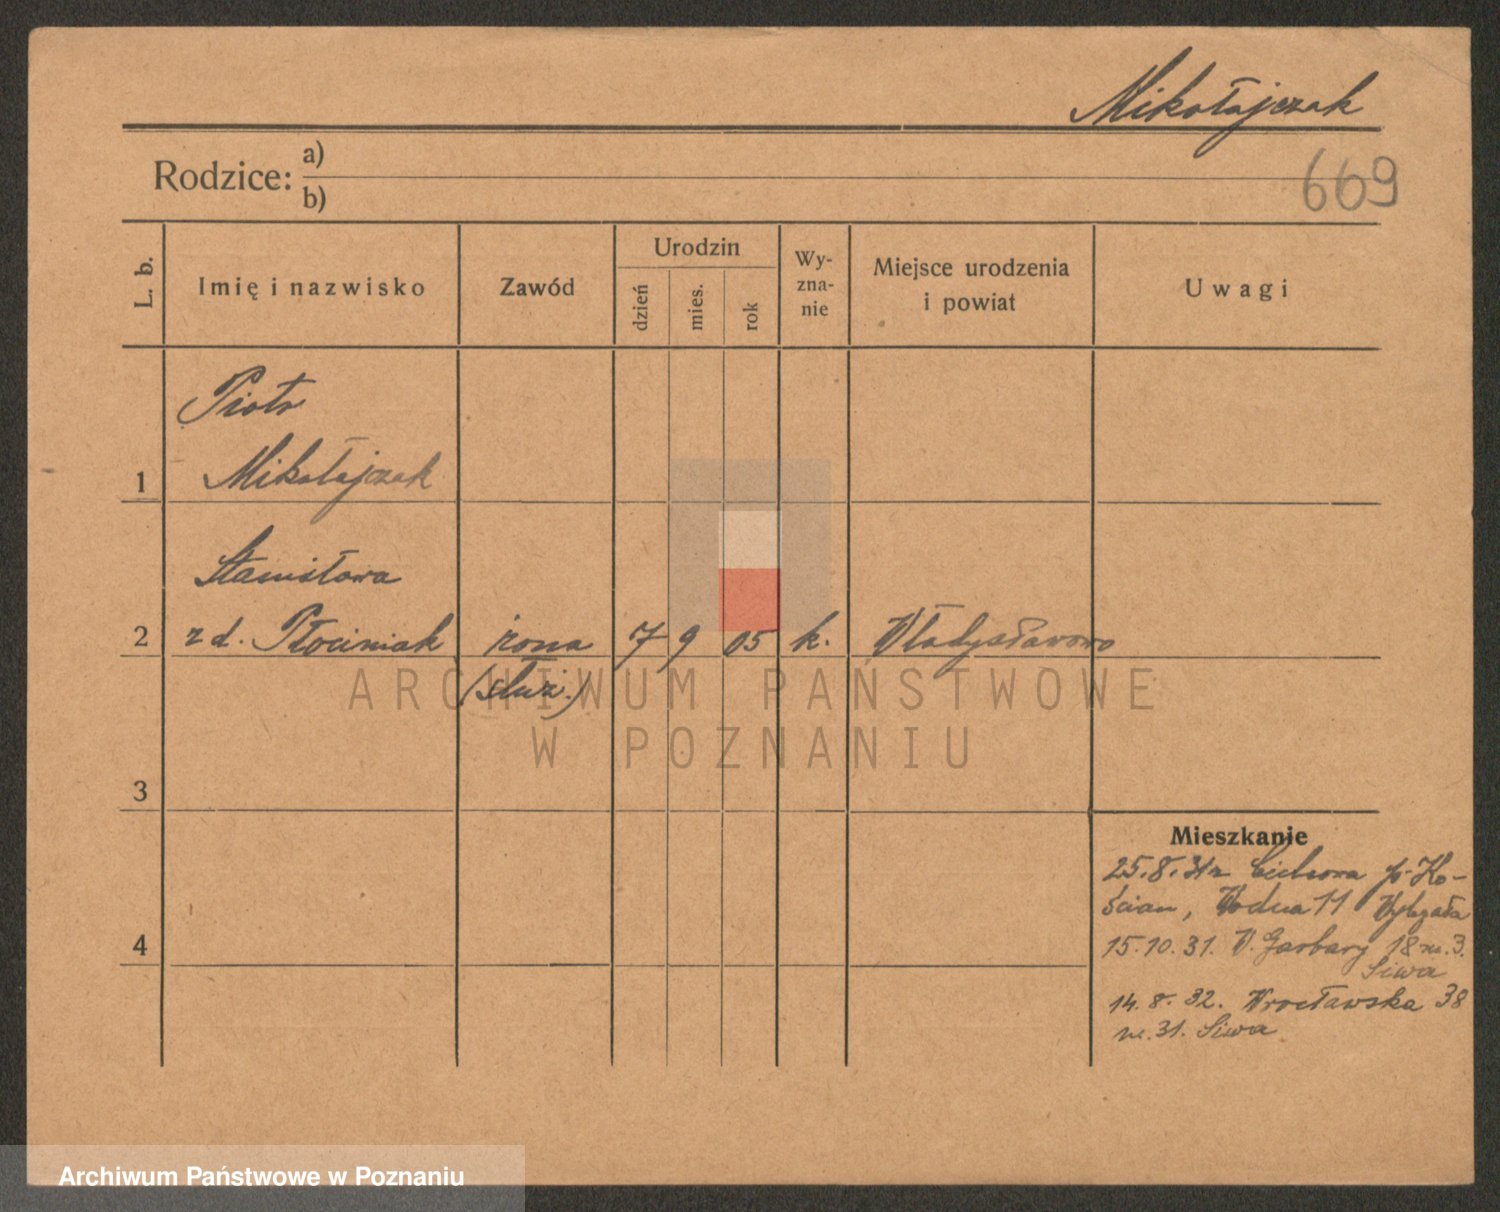 Mikołajczak
669
Rodzice: a)
b)
L. b.
Imię i nazwisko
Zawód
Urodzin
dzień
mies.
rok
Wy-
zna-
nie
Miejsce urodzenia
i powiat
Uwagi
Piotr
1 Mikołajczak
Stanisława
2 z d. Płociniak żona 7 9 05 k. Władysławowo
(służ.)
3
4
Mieszkanie
25.8.31 z p. Ko-
ścian, Wodna 11
15.10.31. W. Garbary 18 m. 3.
Siwa
14.8.32. Wrocławska 38
m. 31. Siwa
ARCHIWUM PAŃSTWOWE
W POZNANIU
Archiwum Państwowe w Poznaniu